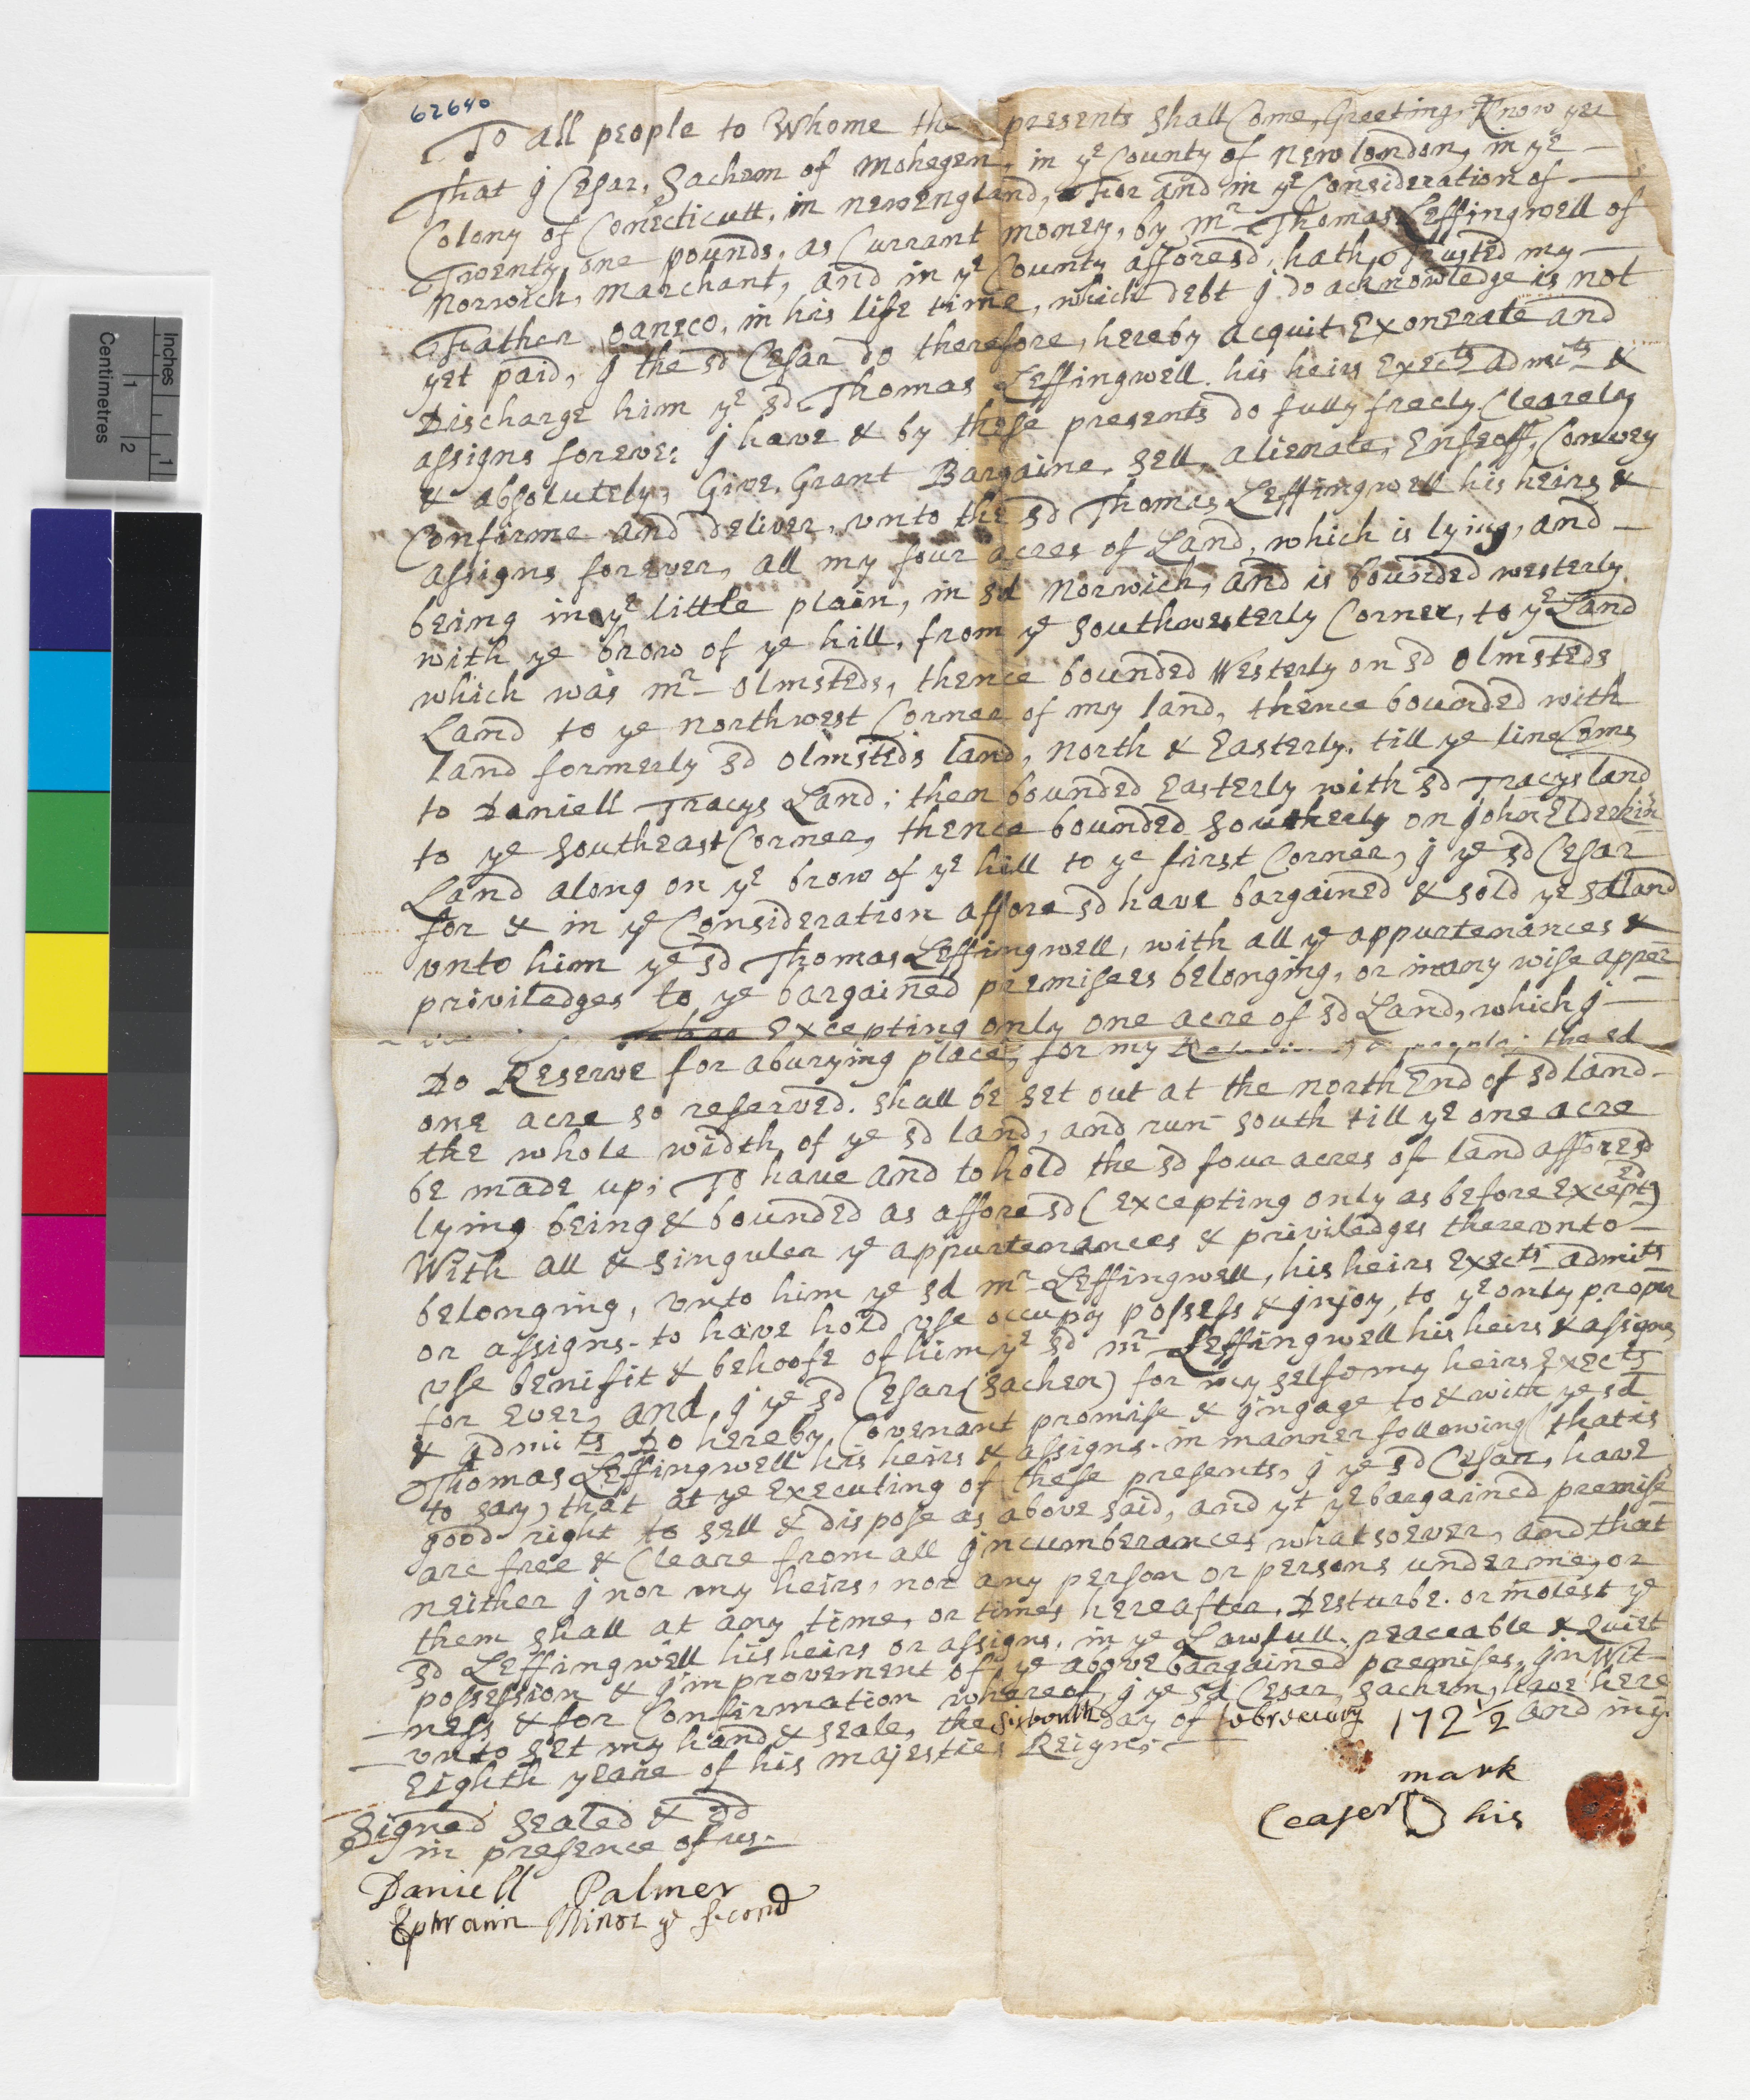 62640
To all people to Whome the presents shall Come, Greeting, Know yee
That j Cesar, Sachem of Mohegen, in ye County of Newlondon, in ye
Colony of Conecticutt, in newengland, For and in ye Consideration of
Twenty one pounds, as Currant money, by mr Thomas Leffingwell of
Norwich, marchant, and in ye County afforesd, hath Trusted my
Father oaneco, in his life time, which debt j do acknowledge is not
yet paid, j the sd Cesar do therefore, hereby acquit Exonerate and
Discharge him ye sd Thomas Leffingwell his heirs Exects admits &
assigns forever: j have & by these presents do fully freely Clearely
& absolutely, Give, Grant Bargaine, sell, alienate, Enfeoff, Convey
Confirme and deliver, vnto the sd Thomas Leffingwell his heirs &
assigns forever, all my four acres of Land, which is lying, and
being in ye little plain, in sd Norwich, and is bounded westerly
with ye brow of ye hill, from ye southwesterly Corner, to ye Land
which was mr Olmsteds, thence bounded Westerly on sd Olmsteds
Land to ye northwest Corner of my land, thence bounded with
land formerly sd Olmsteds land, north & Easterly, till ye line Coms
to Daniell Tracys Land; then bounded Easterly with sd Tracys land
to ye southeast Corner, thence bounded southerly on john Elderkin
Land along on ye brow of ye hill to ye first Corner, j ye sd Cesar
for & in ye Consideration affore sd have bargained & sold ye sd land
vnto him ye sd Thomas Leffingwell, with all ye appurtenances &
priviledges to ye bargained premisees belonging, or in any wise apper
Excepting only one acre of sd Land, which j
Do Reserve for a burying place, for my the sd
one acre so reserved. shall be set out at the north End of sd land
the whole width of ye sd land, and run south till ye one acre
be made up; To have and to hold the sd four acres of land afforesd
lying being & bounded as affore sd (excepting only as before Excepted)
With all & singuler ye appurtenances & priviledges therevnto
belonging, vnto him ye sd mr Leffingwell, his heirs Exects admits
or assigns. to have hold vse occupy possess & jnjoy, to ye only proper
vse benifit & behoofe of him ye sd mr Leffingwell his heirs & assigns
for ever, and, j ye sd Cesar (sachem) for my selfe my heirs Exects
& admits Do hereby Covenant promise & jngage to & with ye sd
Thomas Leffingwell his heirs & assigns. in manner following (that is
to say) that at ye executing of these presents, j ye sd Cesar, have
good right to sell & dispose as above said, and yt ye bargained premise
are free & Cleare from all jncumberances whatsoever, and that
neither j nor my heirs, nor any person or persons under me, or
them shall at any time, or times hereafter, Desturbe. or molest ye
sd Leffingwell his heirs or assigns, in ye Lawfull, peaceable & Quiet
possession & jmprovement of ye above bargained premises, jn Wit-
ness & for Confirmation whereof, j ye sd Cesar, sachem, have here
vnto set my hand & seale, the sixtenth day of february 172½ and in ye
Eighth yeare of his majesties Reign;
mark
Ceaser his
Signed sealed & dd
in presence of us.
Daniell Palmer
Ephraim Minor ye second
Inches
1
Centimetres
1
2